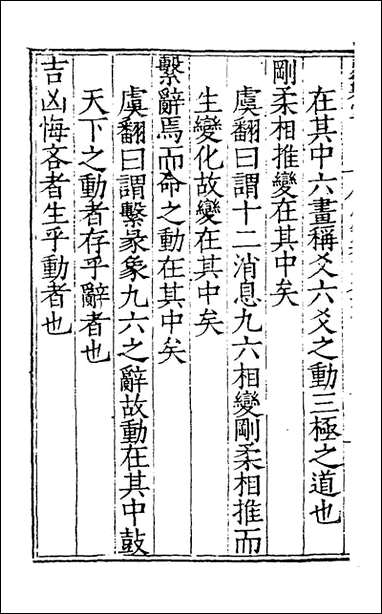 在其中六畫稱爻六爻之動三極之道也
剛柔相推變在其中矣
虞翻曰謂十二消息九六相變剛柔相推而
生變化故變在其中矣
繫辭焉而命之動在其中矣
虞翻曰謂繫彖象九六之辭故動在其中鼓
天下之動者存乎辭者也
吉凶悔吝者生乎動者也